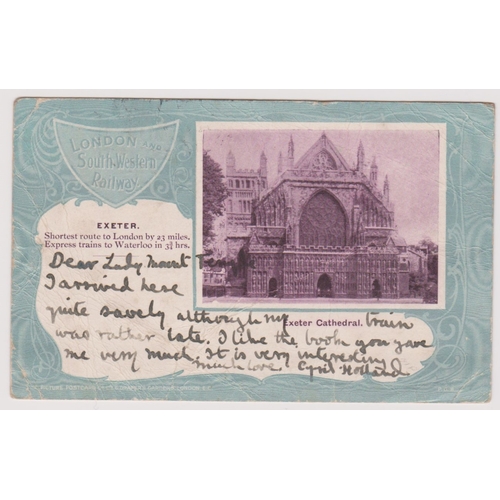 LONDON AND
South Western
Railway.
EXETER.
Shortest route to London by 23 miles.
Express trains to Waterloo in 3¼ hrs.
Dear Lady Mount
I arrived here
quite savely although my train
Exeter Cathedral.
was rather late. I like the book you gave
me very much. It is very interesting
much love Cyril Holland